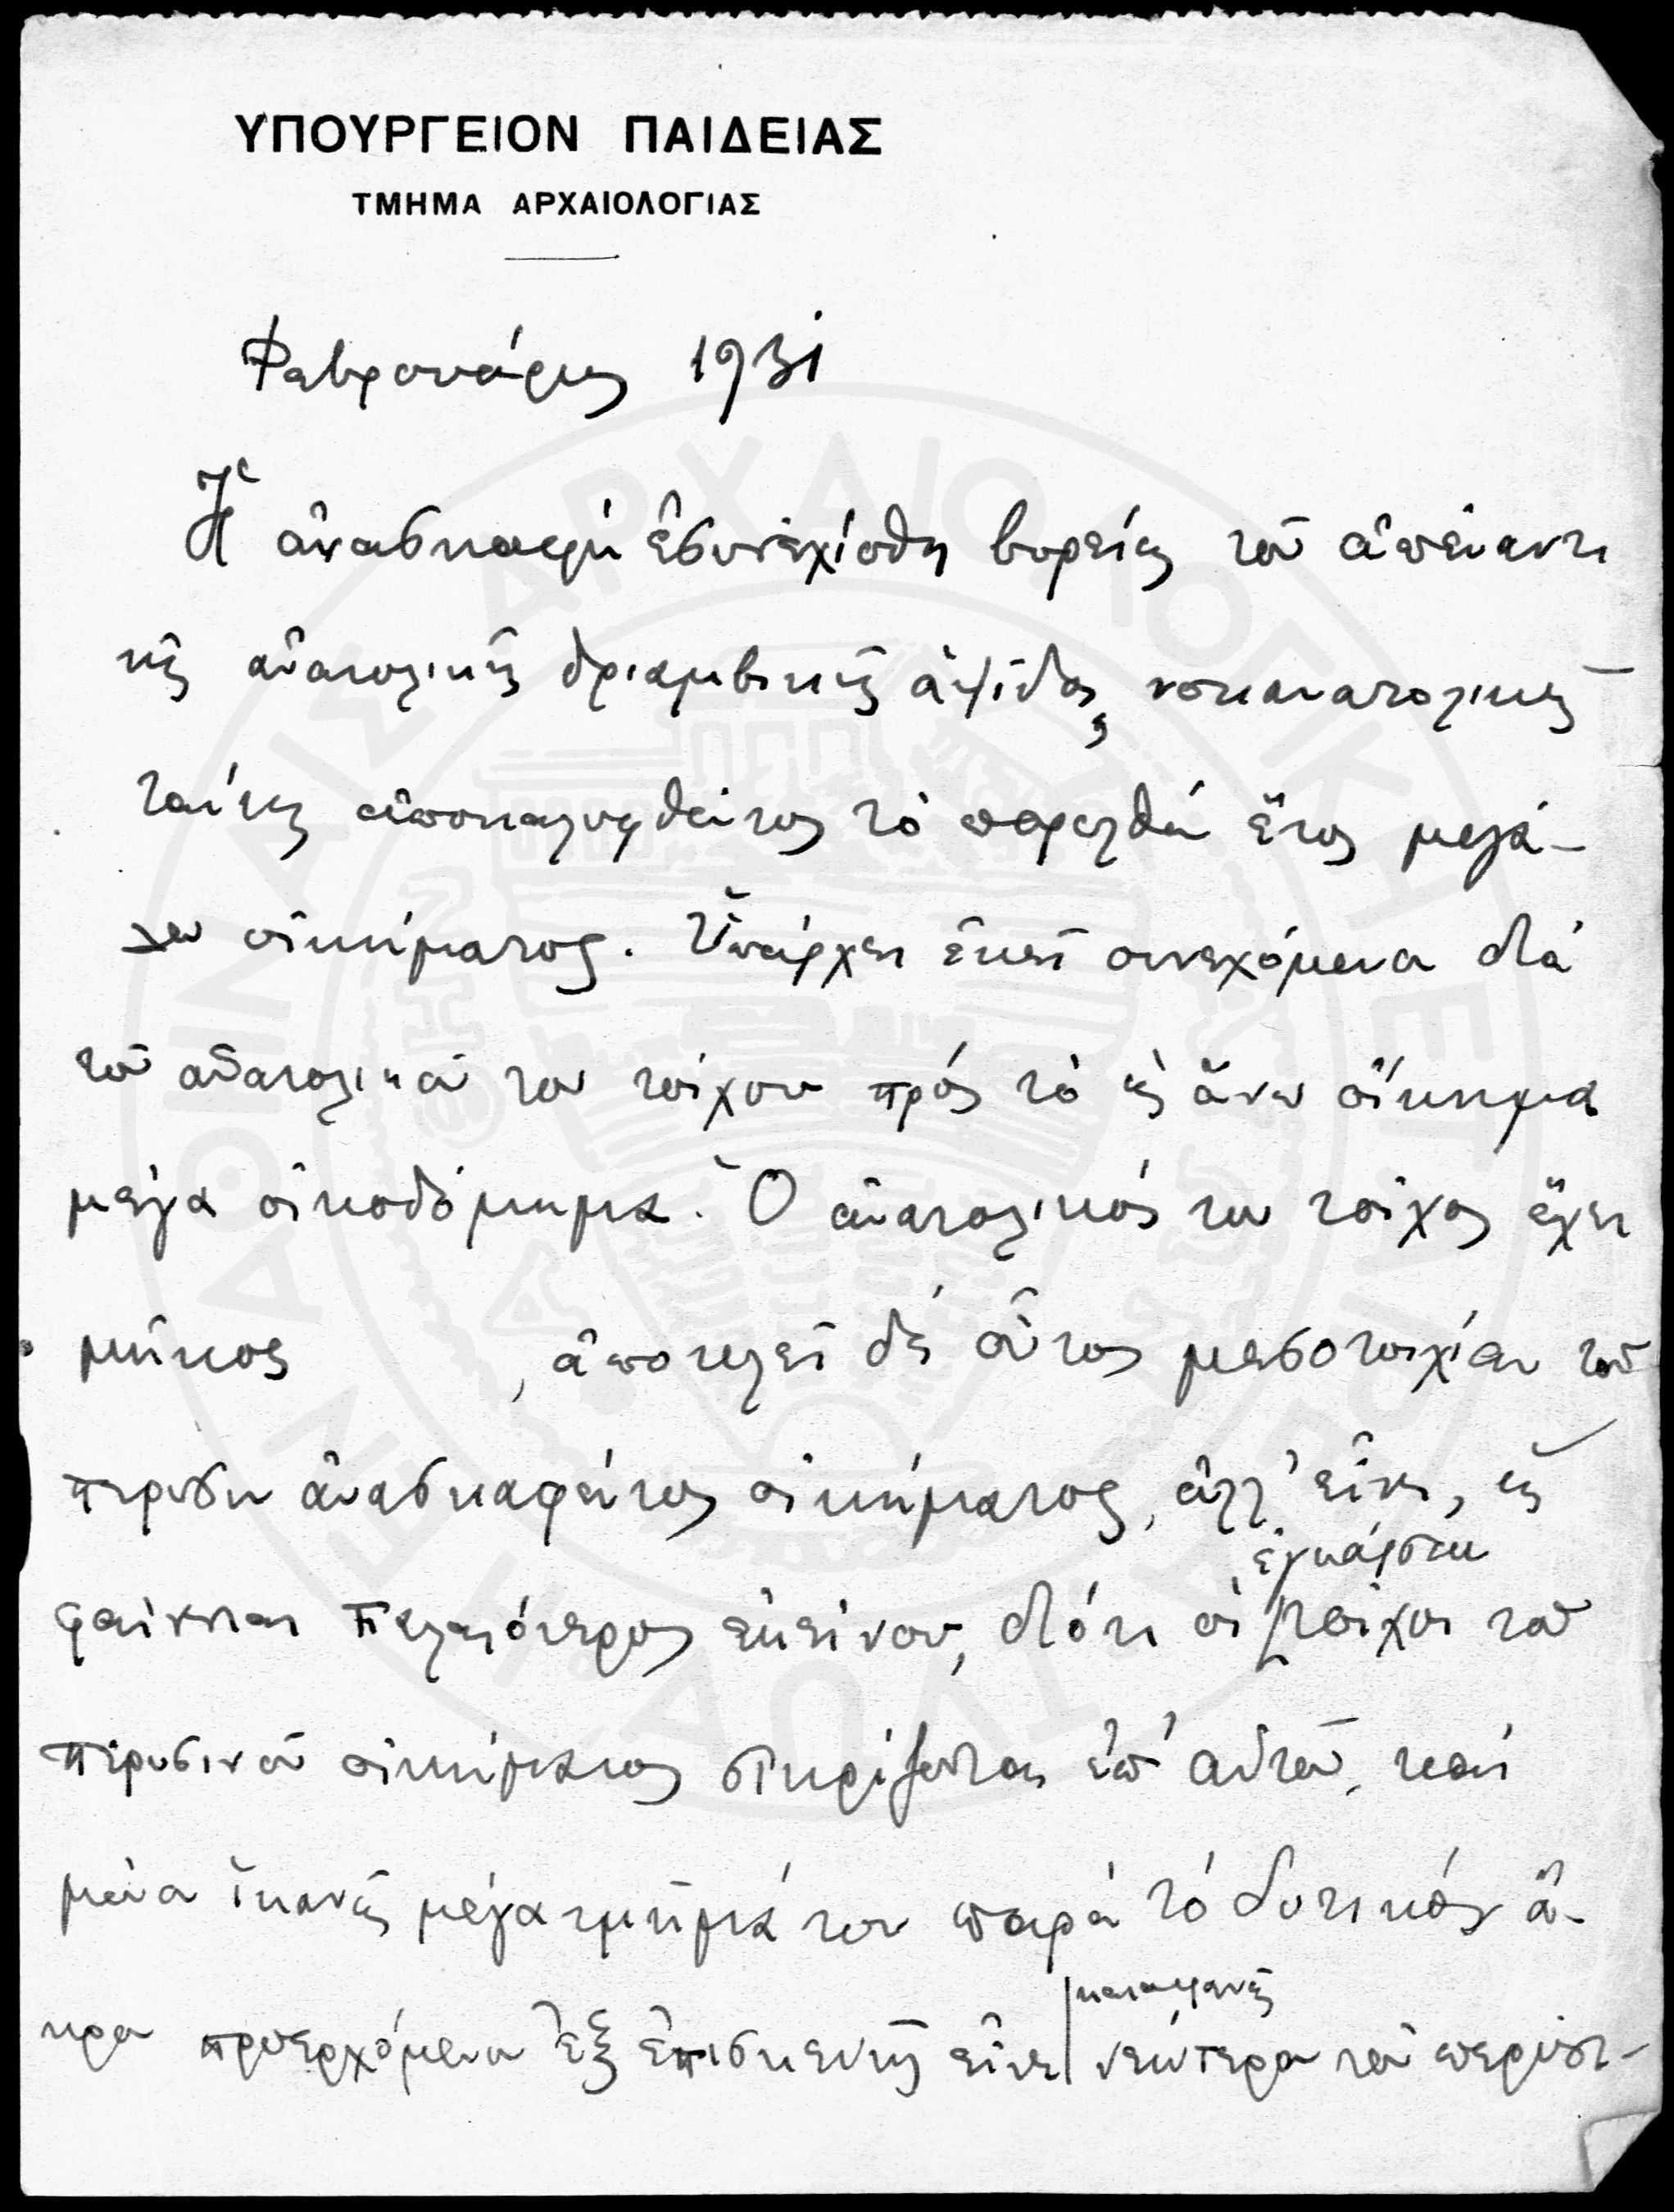 ΥΠΟΥΡΓΕΙΟΝ ΠΑΙΔΕΙΑΣ
ΤΜΗΜΑ ΑΡΧΑΙΟΛΟΓΙΑΣ
Φεβρουάριος 1931
Ἡ ἀνασκαφὴ ἐσυνεχίσθη βορείως τοῦ ἀπέναντι
τῆς ἀνατολικῆς θριαμβικῆς ἁψῖδος, νοτιανατολικῶς
ταύτης ἀποκαλυφθέντος τὸ παρελθὸν ἔτος μεγά-
λου οἰκήματος. Ὑπάρχει ἐκεῖ συνεχόμενον διὰ
τοῦ ἀνατολικοῦ του τοίχου πρὸς τὸ ὡς ἄνω οἴκημα
μέγα οἰκοδόμημα. Ὁ ἀνατολικός του τοῖχος ἔχει
μῆκος , ἀποτελεῖ δὲ οὗτος μεσοτοιχίαν τοῦ
πέρυσιν ἀνασκαφέντος οἰκήματος, ἀλλ' εἶνε, ὡς
φαίνεται παλαιότερος ἐκείνου, διότι οἱ ἐγκάρσιοι τοῖχοι τοῦ
περυσινοῦ οἰκήματος στηρίζονται ἐπ' αὐτοῦ,
μόνον ἱκανῶς μέγα τμῆμά του παρὰ τὸ δυτικὸν ἄ-
κρον προερχόμενον ἐξ ἐπισκευῆς εἶνε καταφανῶς νεώτερον τοῦ περυσι-
ΕΝ ΑΘΗΝΑΙΣ ΑΡΧΑΙΟΛΟΓΙΚΗ ΕΤΑΙΡΕΙΑ